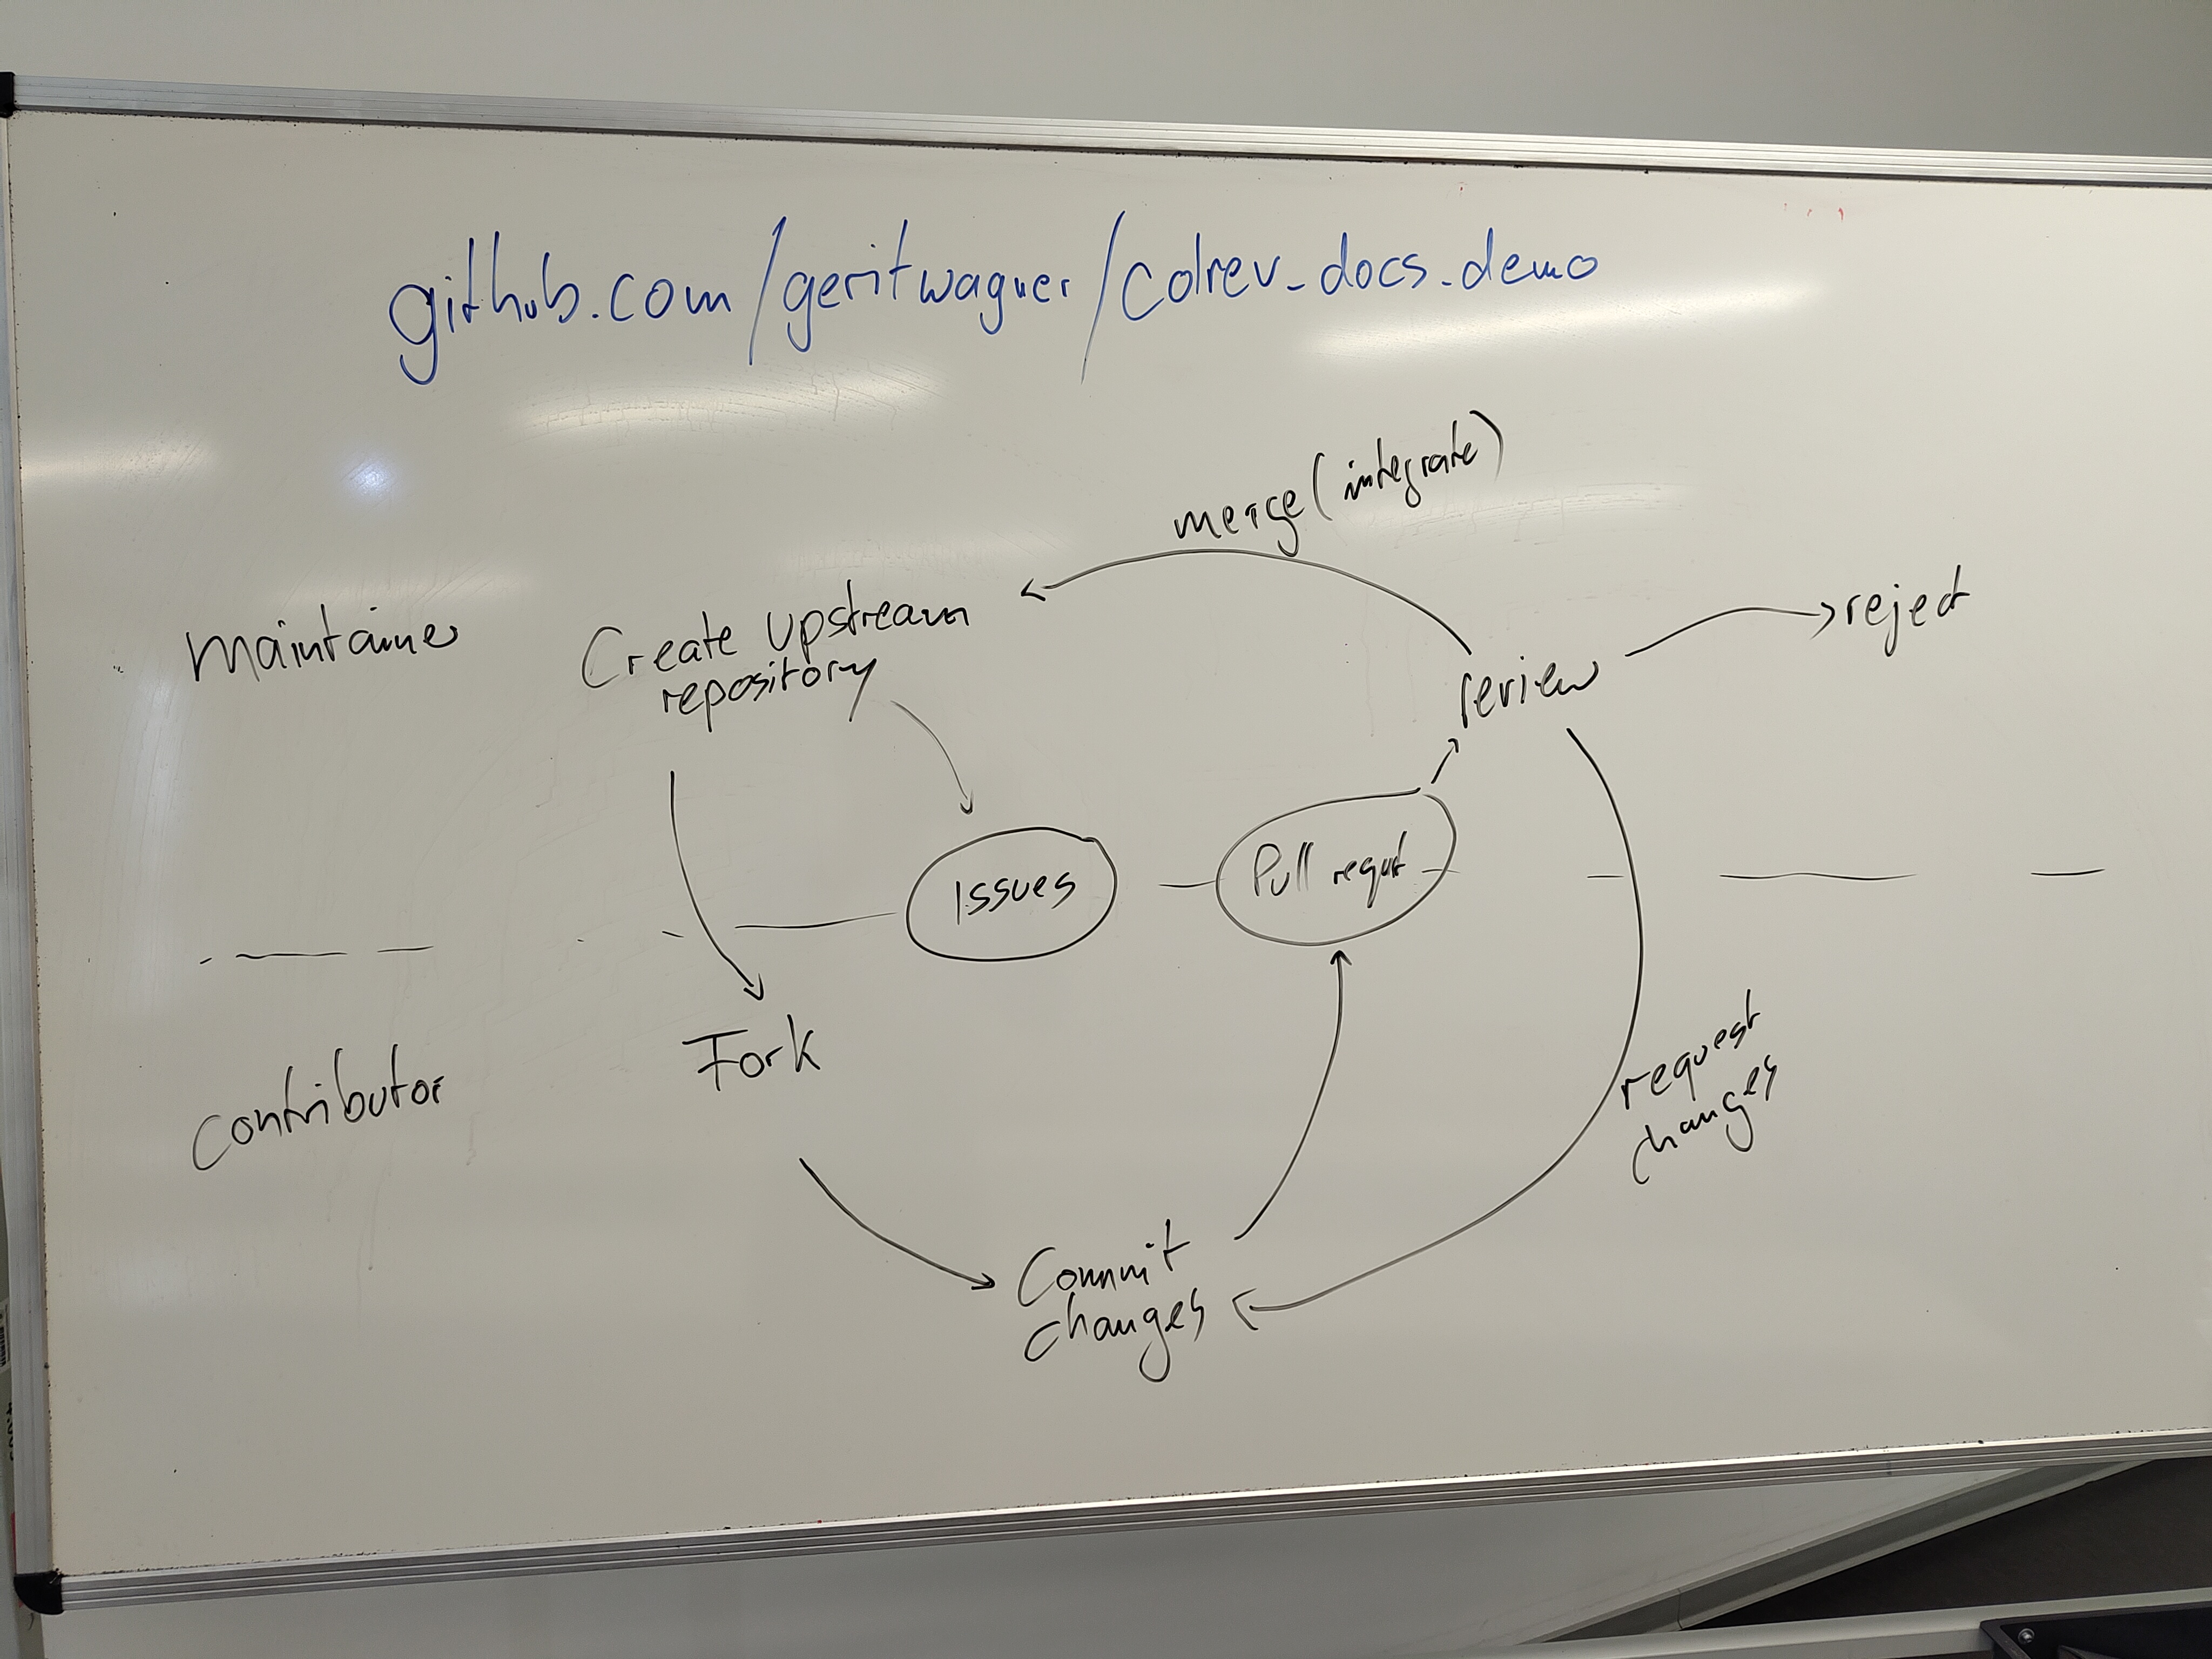 github.com/geritwagner/colrev_docs_demo
merge (integrate)
Maintainer
Create Upstream
repository
review
reject
Issues
Pull requst
Fork
Contributor
request
changes
Commit
changes